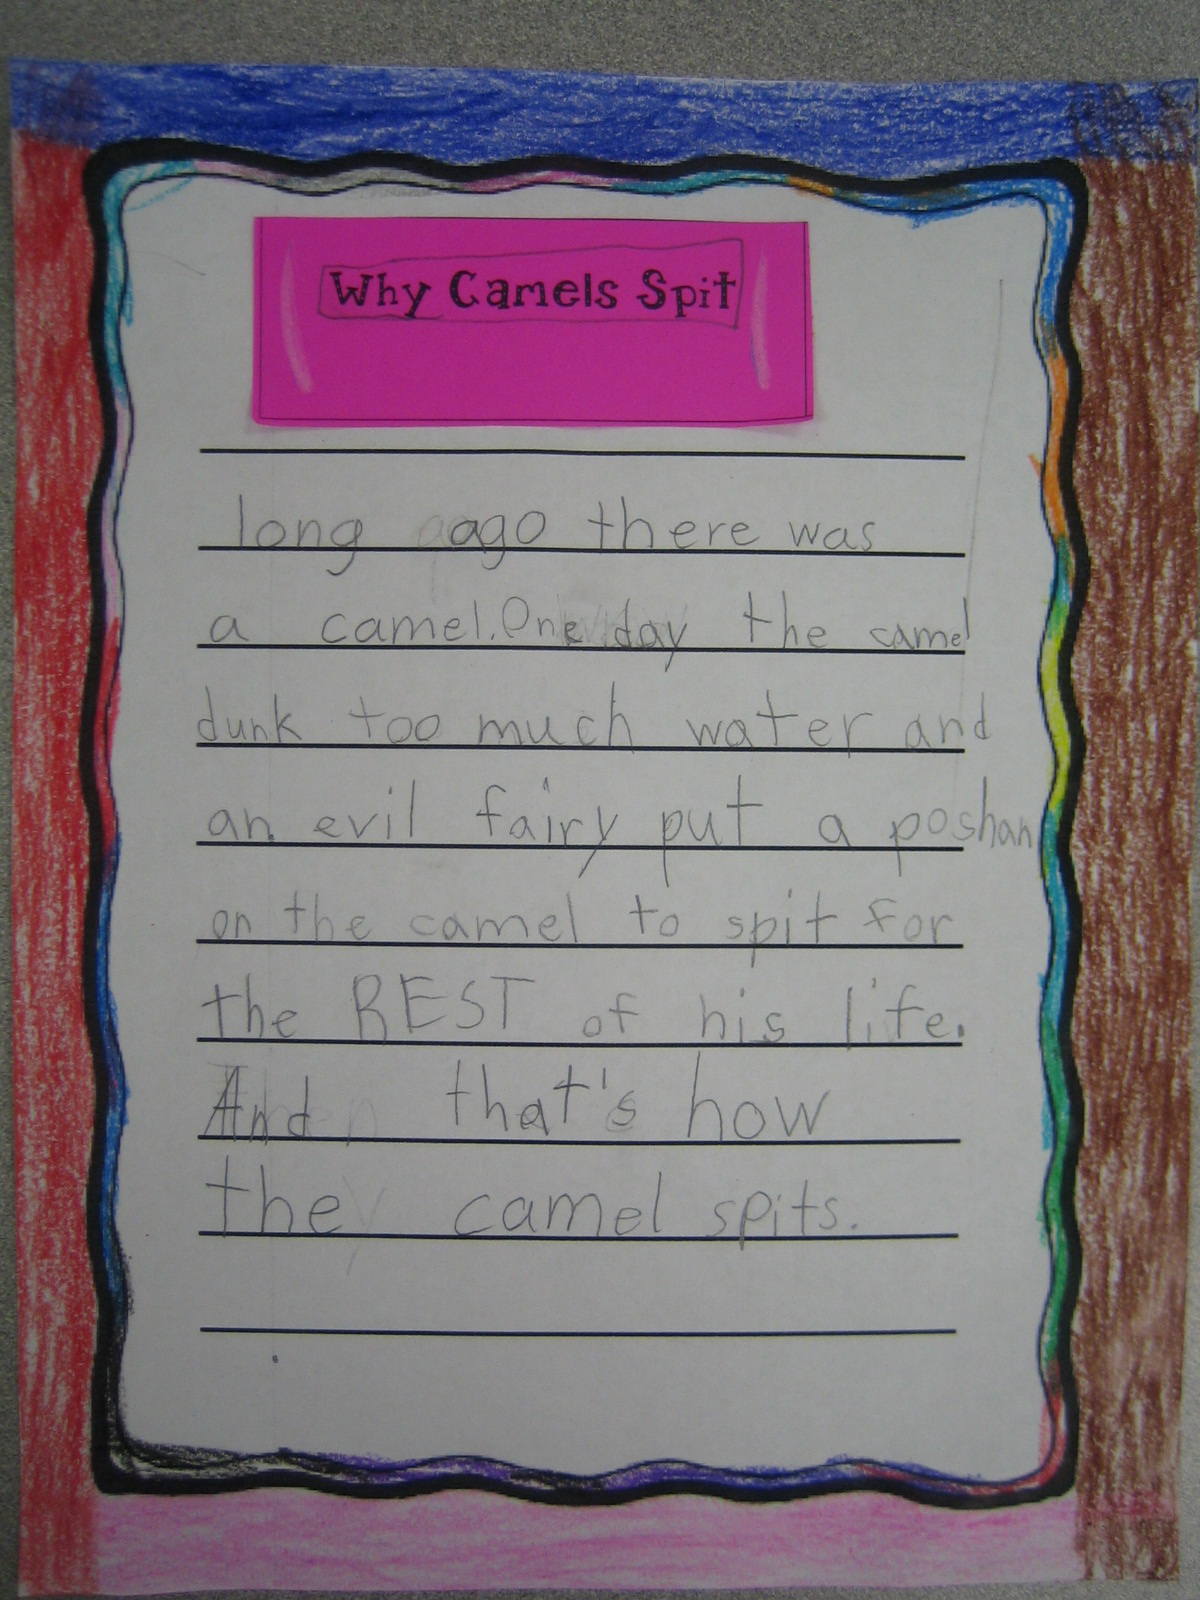 Why Camels Spit
long ago there was
a camel. One day the camel
dunk too much water and
an evil fairy put a poshan
on the camel to spit for
the REST of his life.
And that's how
the camel spits.